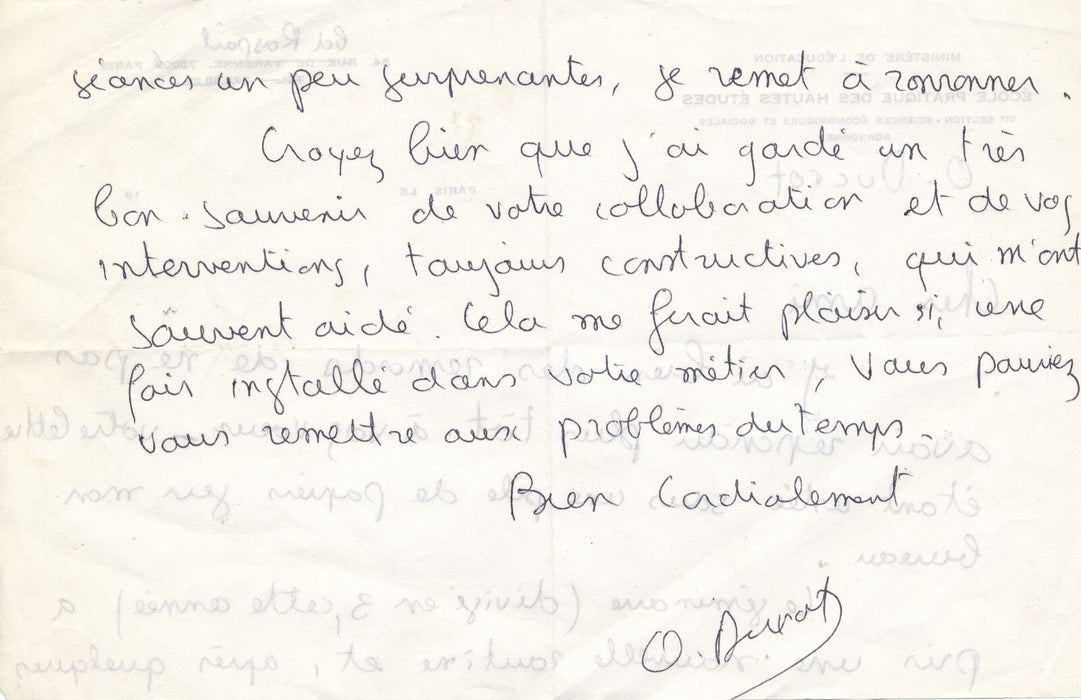 séances un peu surprenantes, se remet à ronronner.
Croyez bien que j'ai gardé un très
bon souvenir de votre collaboration et de vos
interventions, toujours constructives, qui m'ont
souvent aidé. Cela me ferait plaisir si, une
fois installé dans votre métier, vous pouviez
vous remettre aux problèmes du temps.
Bien Cordialement
O. Ducrot